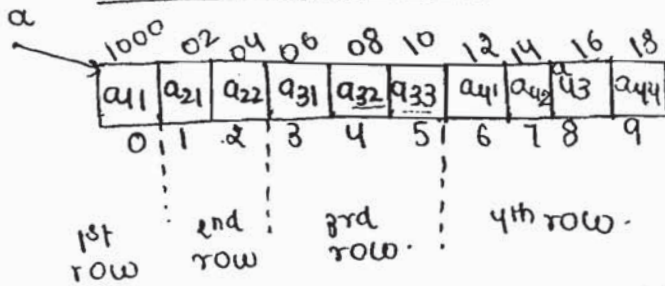 a
1000 02 04 06 08 10 12 14 16 18
a11 a21 a22 a31 a32 a33 a41 a42 a43 a44
0 1 2 3 4 5 6 7 8 9
1st row 2nd row 3rd row. 4th row.